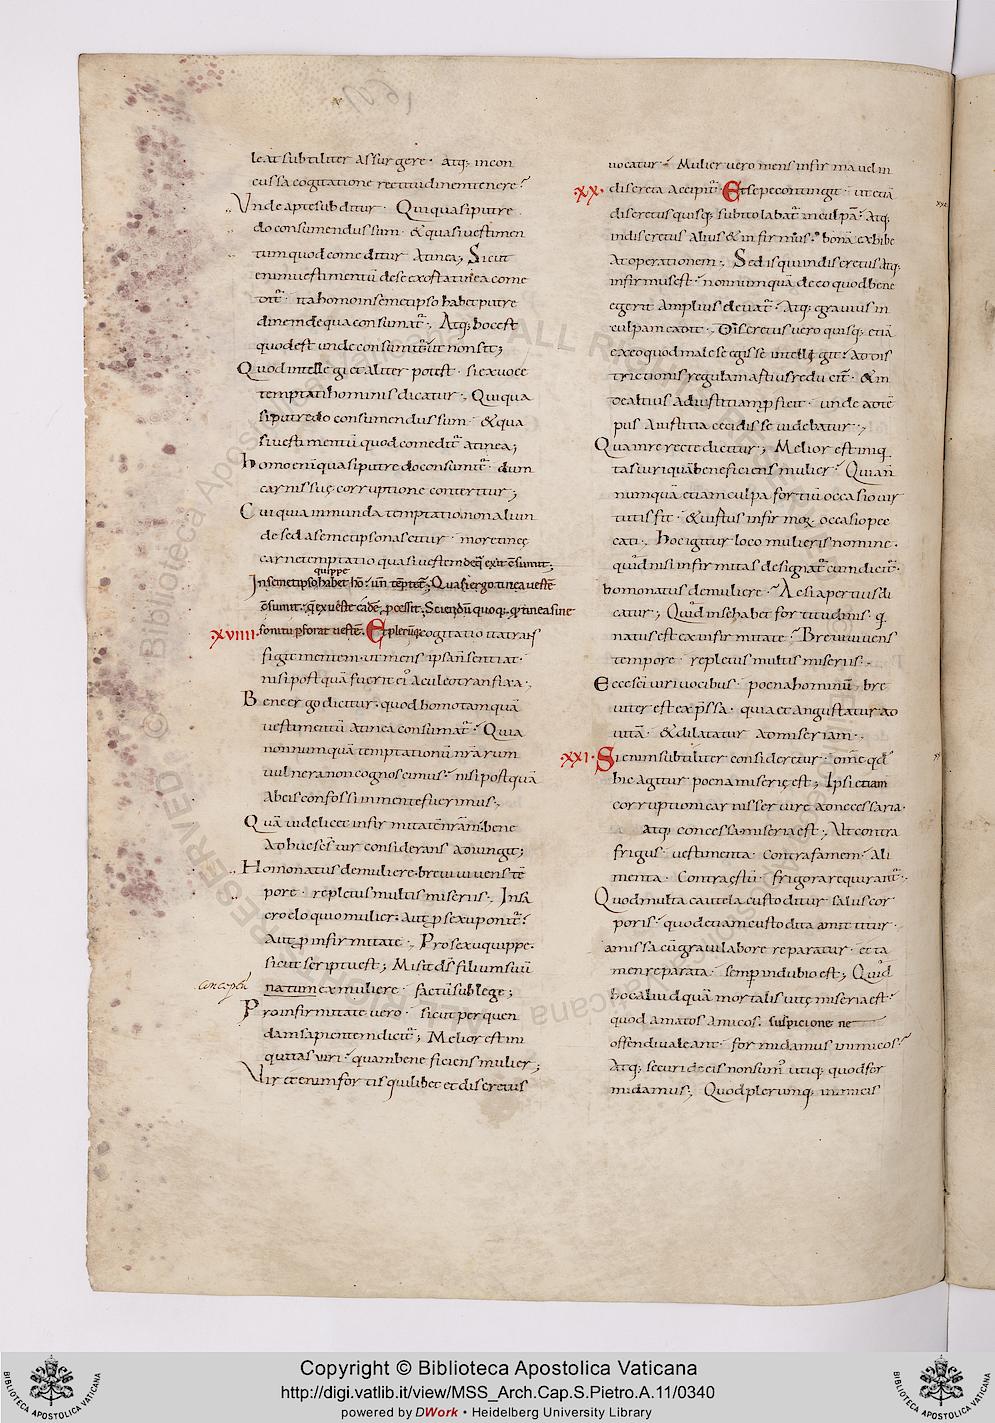 leat subtiliter assurgere · atq; incon
cussa cogitatione rectitudinem tenere
Unde apte subditur · Qui quasi putre
do consumendus sum · & quasi vestimen
tum quod comeditur a tinea; Sicut
enim vestimentū de se exorta tinea come
ditr̄ · ita homo in semetipso habet putre
dinem de qua consumat̄ · Atq; hoc est
quod est unde consumit̄ ut non sit;
Quod intellegi et aliter potest · si ex voce
temptati hominis dicatur ; Qui qua
si putredo consumendus sum · & qua
si vestimentū quod comeditr̄ a tinea;
homo enī quasi putredo consumit̄ · dum
carnis suę corruptione conteritur;
Cui quia inmunda temptatio non aliun
de sed a semetipso nascitur · more tineę
carnē temptatio quasi vestem de q̄ exit c̄sumit;
In semetipso quippe habet hō · un̄ tēptet̄; Quasi ergo tinea vestē
c̄sumit · q̄ ex veste eadē pcessit. Sciendū quoq; q̄ tinea sine
·XVIIII· sonitu pforat vestē. Et plerūq; cogitatio ita trans
figit mentem · ut mens ipsa n̄ sentiat ·
nisi postquā fuerit ei' aculeo transfixa ·,
Bene ergo dicitur · quod homo tamquā
vestimentū a tinea consumat̄ · Quia
nonnumquā temptationū nr̄arum
vulnera non cognoscimus · nisi postquā
ab eis confossi in mente fuerimus ·,
Quā videlicet infirmitatē nr̄am bene
adhuc sc̄s vir considerans adiungit;
Homo natus de muliere · brevi vivens tē
pore · repletus multis miseriis ·, In sa
cro eloquio mulier · aut p sexu ponit̄
aut p infirmitate ·, Pro sexu quippe ·
sicut scriptū est; Misit ds̄ filium suū
conceptū
natum ex muliere · factū sub lege;
Pro infirmitate vero · sicut per quen
dam sapientem dicit̄; Melior est ini
quitas viri · quam benefaciens mulier;
Vir etenim fortis quilibet et discretus
vocatur · Mulier vero mens infirma vel in
·XX· discreta accipit̄ · Et sepe contingit · ut etiā
discretus quisq; subito labat̄ in culpā · Atq;
indiscretus alius & infirmus · bonā exhibe
at operationem ·, Sed is qui indiscretus atq;
infirmus est · nonnumquā de eo quod bene
egerit amplius elevat̄ · Atq; gravius in
culpam cadit ·, Discretus vero quisq; etiā
ex eo quod male se egisse intellegit · ad dis
trictionis regulam altius reducit̄ · & in
de altius ad iustitiam pficit · unde ad tē
pus a iustitia cecidisse videbatur ·,
Qua in re recte dicitur; Melior est iniq
tas viri quā benefaciens mulier · Quia n̄
numquā etiam culpa fortiū occasio vir
tutis fit · & virtus infirmoꝝ occasio pec
cati ·, Hoc igitur loco mulieris nomine ·
quid nisi infirmitas designat̄ cum dicit̄ ·
homo natus de muliere · Ac si apertius di
catur; Quid in se habet fortitudinis · q̄
natus est ex infirmitate · Brevi vivens
tempore · repletus multis miseriis ·,
Ecce sc̄i viri vocibus · poena hominū bre
viter est ex p̄ssa · quia et angustatur ad
vitā · & dilatatur ad miseriam ·,
·XXI· Si enim subtiliter consideretur · om̄e qd̄
hic agitur poena miserię est; Ipsi etiam
corruptioni carnis servire ad necessaria ·
atq; concessa · miseria est; Ut contra
frigus · vestimenta · contra famem · ali
menta · Contra ęstū · frigora requirant̄ ·,
Quod multa cautela custoditur salus cor
poris · quod etiam custodita amittitur ·
amissa cū gravi labore reparatur · et ta
men reparata · semp in dubio est; Quid
hoc aliud quā mortalis vitę miseria est ·
quod amatos amicos · suspicione ne
offendi valeant · formidamus inimicos ·
Atq; securi de eis non sum' utiq; quos for
midamus ·, Quod plerumq; inimicis
Copyright © Biblioteca Apostolica Vaticana
http://digi.vatlib.it/view/MSS_Arch.Cap.S.Pietro.A.11/0340
powered by DWork • Heidelberg University Library
BIBLIOTECA APOSTOLICA VATICANA
BIBLIOTECA APOSTOLICA VATICANA